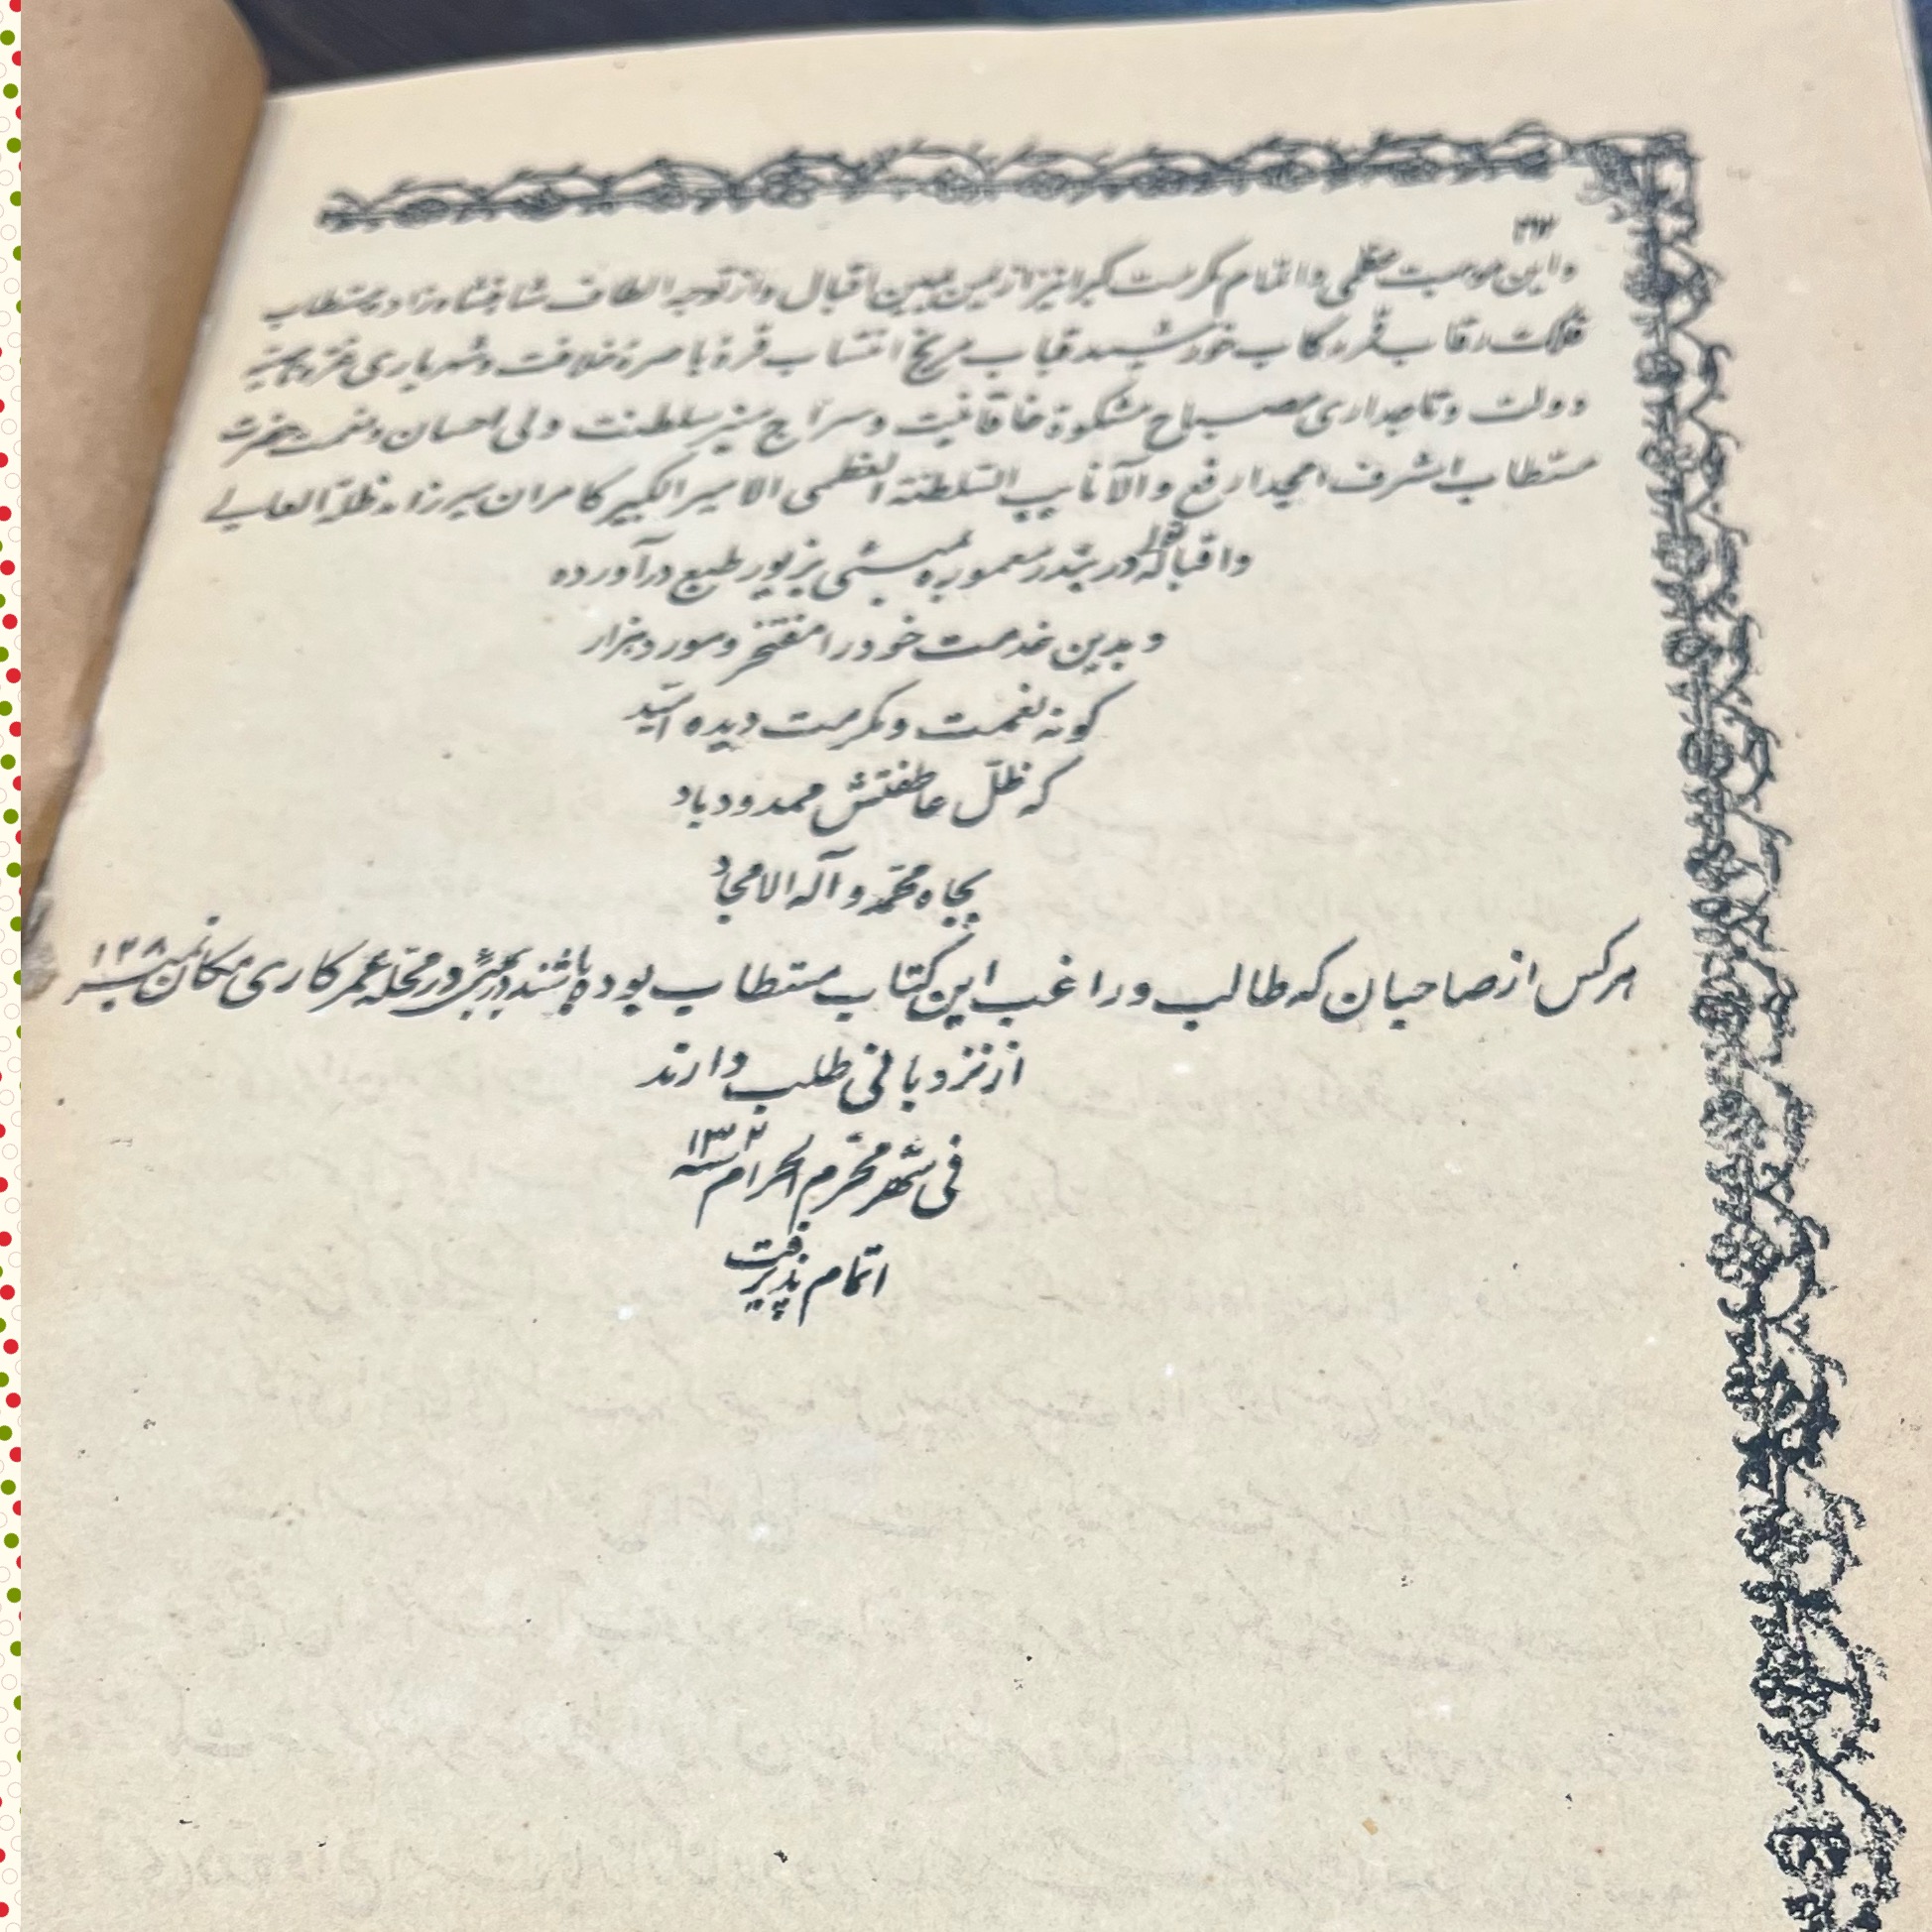 ۳۳
واین موهبت عظمی واتمام مکرمت کبرا نیز از یمن یمین اقبال واز توجه الطاف شاهنشاه زاده مستطاب
فلک رقاب قمر رکاب خورشید قباب مریخ انتساب قرهٔ باصرهٔ خلافت وشهریاری غره ناصیهٔ
دولت وتاجداری مصباح مشکوة خاقانیت وسراج منیر سلطنت ولی احسان ونعمت حضرت
مستطاب اشرف امجد ارفع والا نایب السلطنة العظمی الامیر الکبیر کامران میرزا مد ظله العالی
واقباله در بندر معموره بمبئی بزیور طبع درآورده
وبدین خدمت خود را مفتخر ومورد هزار
کونه نعمت ومکرمت دیده امید
که ظلّ عاطفتش ممدود باد
بجاه محمّد وآله الامجاد
هرکس از صاحبان که طالب وراغب این کتاب مستطاب بوده باشند در بمبئی در محله عمرکاری مکان نمبر ۱۲۸
از نزد بافی طلب دارند
فی شهر محرّم الحرام سنه ۱۳۰۲
اتمام پذیرفت